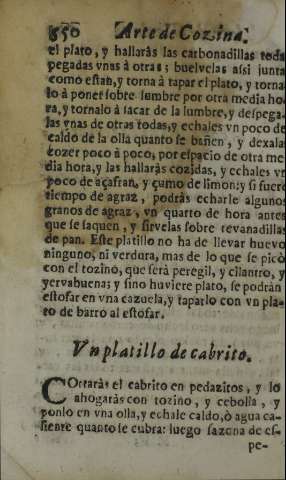 350 Arte de Cozina.
el plato, y hallaràs las carbonadillas toda
pegadas vnas à otras; buelvelas assi junta
como estan, y torna à tapar el plato, y torna
lo à poner sobre lumbre por otra media ho
ra, y tornalo à sacar de la lumbre, y despega
las vnas de otras todas, y echales vn poco de
caldo de la olla quanto se bañen, y dexala
cozer poco à poco, por espacio de otra me
dia hora, y las hallaràs cozidas, y echales vn
poco de açafran, y çumo de limon; y si fuere
tiempo de agraz, podràs echarle alguno
granos de agraz, vn quarto de hora antes
que se saquen, y sirvelas sobre revanadillas
de pan. Este platillo no ha de llevar huevo
ninguno, ni verdura, mas de lo que se picò
con el tozino, que serà peregil, y cilantro, y
yervabuena; y sino huviere plato, se podràn
estofar en vna cazuela, y taparlo con vn pla-
to de barro al estofar.
Vn platillo de cabrito.
COrtaràs el cabrito en pedazitos, y lo
ahogaràs con tozino, y cebolla, y
ponlo en vna olla, y echale caldo, ò agua ca-
liente quanto se cubra: luego sazona de es-
pe-